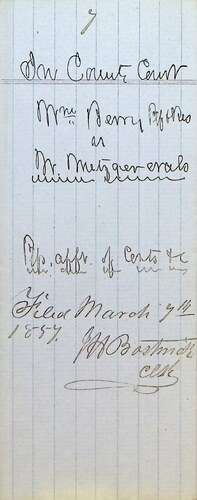 7
In County Court
Wm Berry
vs
W. Metzger et als
of Costs &c
Filed March 7th
1857.
J H Bostwick
Clk